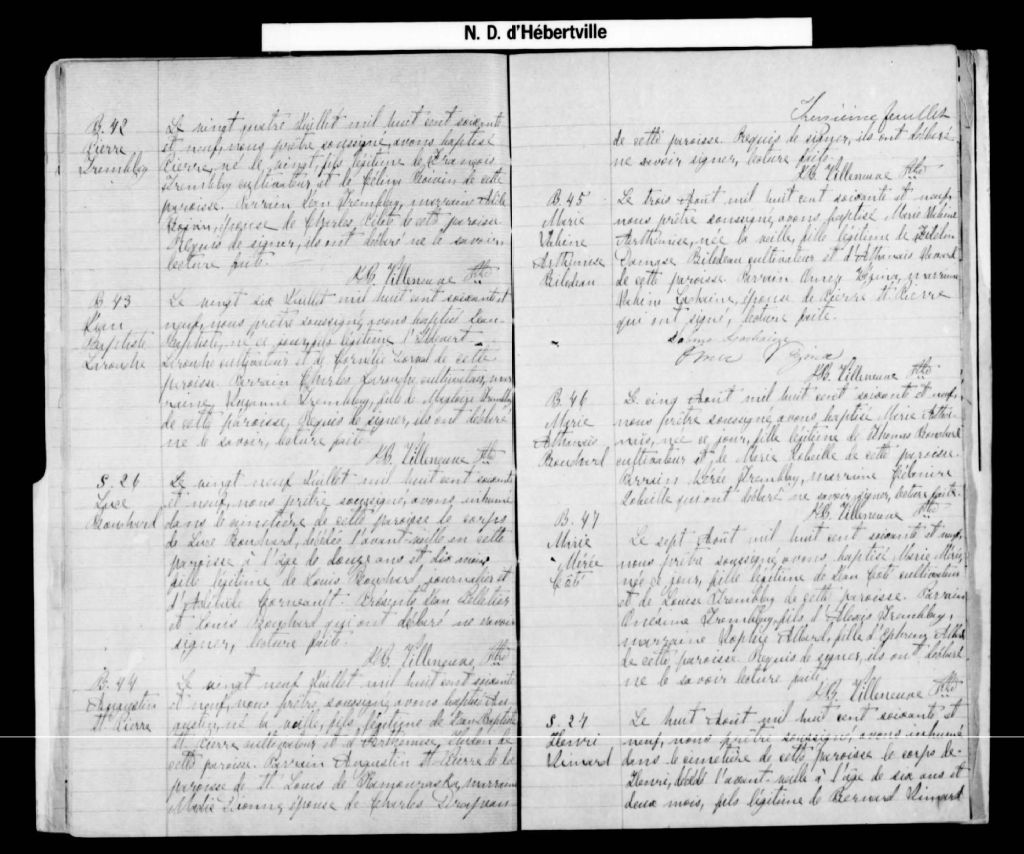 N. D. d'Hébertville
B. 42
Pierre
Tremblay
Le vingt quatre Juillet mil huit cent soixante
et neuf, nous prêtre soussigné, avons baptisé
Pierre, né le vingt, fils légitime de François
Tremblay cultivateur et de Célina Boivin de cette
paroisse. Parrain Jean Tremblay, marraine Adèle
épouse de Charles Côté de cette paroisse
Requis de signer, ils ont déclaré ne le savoir,
lecture faite.
J.B. Villeneuve Ptre
B 43
Jean
Baptiste
Larouche
Le vingt six Juillet mil huit cent soixante et
neuf, nous prêtre soussigné, avons baptisé Jean-
Baptiste, né ce jour, fils légitime
Larouche cultivateur et de Cornélie de cette
paroisse. Parrain Charles Larouche, cultivateur, mar-
raine, Suzanne Tremblay, fille de Tremblay
de cette paroisse, Requis de signer, ils ont déclaré
ne le savoir, lecture faite.
J.B. Villeneuve Ptre
S. 26
Luce
Bouchard
Le vingt neuf Juillet mil huit cent soixante
et neuf, nous prêtre soussigné, avons inhumé
dans le cimetière de cette paroisse le corps
de Luce Bouchard, décédée l'avant-veille en cette
paroisse à l'âge de douze ans et dix mois,
fille légitime de Louis Bouchard, journalier et
d'Adélaïde Corneault. Présents Jean Pelletier
et Louis Bouchard qui ont déclaré ne savoir
signer, lecture faite.
J.B. Villeneuve, Ptre
B. 44
Augustin
St Pierre
Le vingt neuf Juillet mil huit cent soixante
et neuf, nous prêtre, soussigné, avons baptisé Au-
gustin, né la veille, fils légitime de Jean Baptiste
St Pierre cultivateur et d'Arthémise de
cette paroisse. Parrain Augustin St Pierre de la
paroisse de St Louis de Kamouraska, marraine
Marie Dionne, épouse de Charles
Treizième feuillet
de cette paroisse. Requis de signer, ils ont déclaré
ne savoir signer, lecture faite.
J.B. Villeneuve Ptre
B. 45
Marie
Arthémise
Bilodeau
Le trois Août mil huit cent soixante et neuf,
nous prêtre soussigné, avons baptisé Marie
Arthémise, née la veille, fille légitime de
Damase Bilodeau cultivateur et d'Athanaïs
de cette paroisse. Parrain Vézina, marraine
épouse de Pierre St Pierre
qui ont signé, lecture faite.
Vézina
J.B. Villeneuve Ptre
B. 46
Marie
Athanaïs
Bouchard
Le cinq Août mil huit cent soixante et neuf,
nous prêtre soussigné avons baptisé Marie Atha-
naïs, née ce jour, fille légitime de Thomas Bouchard
cultivateur et de Marie de cette paroisse.
Parrain Tremblay, marraine
qui ont déclaré ne savoir signer, lecture faite.
J.B. Villeneuve Ptre
B. 47
Marie
Mérée
Côté
Le sept Août mil huit cent soixante et neuf,
nous prêtre soussigné avons baptisé Marie Mérée,
née ce jour, fille légitime de Jean Côté cultivateur
et de Louise Tremblay de cette paroisse. Parrain
Onésime Tremblay, fils d'Alexis Tremblay,
marraine Sophie Allard, fille d'Ephrem Allard
de cette paroisse. Requis de signer, ils ont déclaré
ne le savoir lecture faite.
J.B. Villeneuve Ptre
S. 27
Henri
Simard
Le huit Août mil huit cent soixante et
neuf, nous prêtre soussigné, avons inhumé
dans le cimetière de cette paroisse le corps de
Henri, décédé l'avant-veille à l'âge de six ans et
deux mois, fils légitime de Bernard Simard